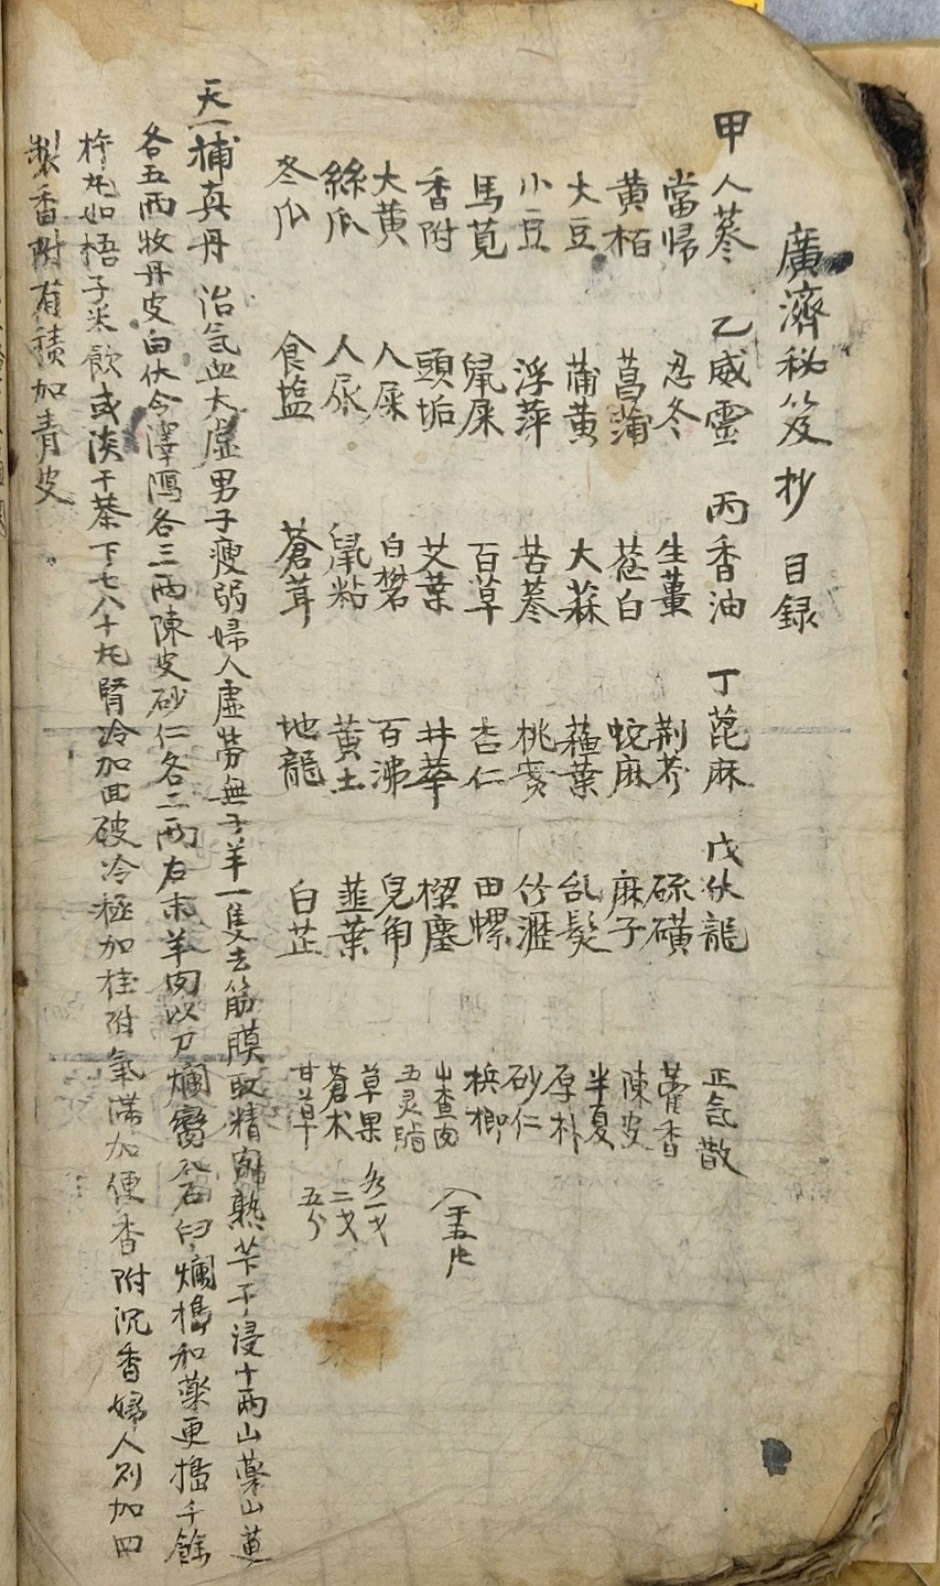 廣濟秘笈抄 目録
甲人蔘 乙威靈 丙香油 丁萞麻 戊伏龍 正気散
當帰 忍冬 生薑 荊芥 硫磺 藿香
黄栢 菖蒲 葱白 蛇麻 麻子 陳皮
大豆 蒲黄 大蒜 蘓葉 乱髮 半夏
小豆 浮萍 苦蔘 桃實 竹瀝 厚朴
馬莧 鼠屎 百草 杏仁 田螺 砂仁
香附 頭垢 艾葉 井華 樑塵 檳榔
大黄 人屎 白礬 百沸 皃角 山査肉
絲瓜 人尿 鼠粘 黄土 韮葉 五灵脂
冬瓜 食塩 蒼茸 地龍 白芷 草果 各一戈
蒼术 二戈
甘草 五分
天一補真丹 治気血大虛男子瘦弱婦人虛勞無子羊一隻去筋膜取精 熟芐干浸十兩山藥山茰
各五兩牧丹皮白伏令澤瀉各三兩陳皮砂仁各二兩右末羊肉以刀爛 入石臼爛搗和藥更搗千餘
杵丸如梧子米飮或淡干茶下七八十丸腎冷加回破冷極加桂附氣滿加便香附沉香婦人別加四
製香附有積加青皮